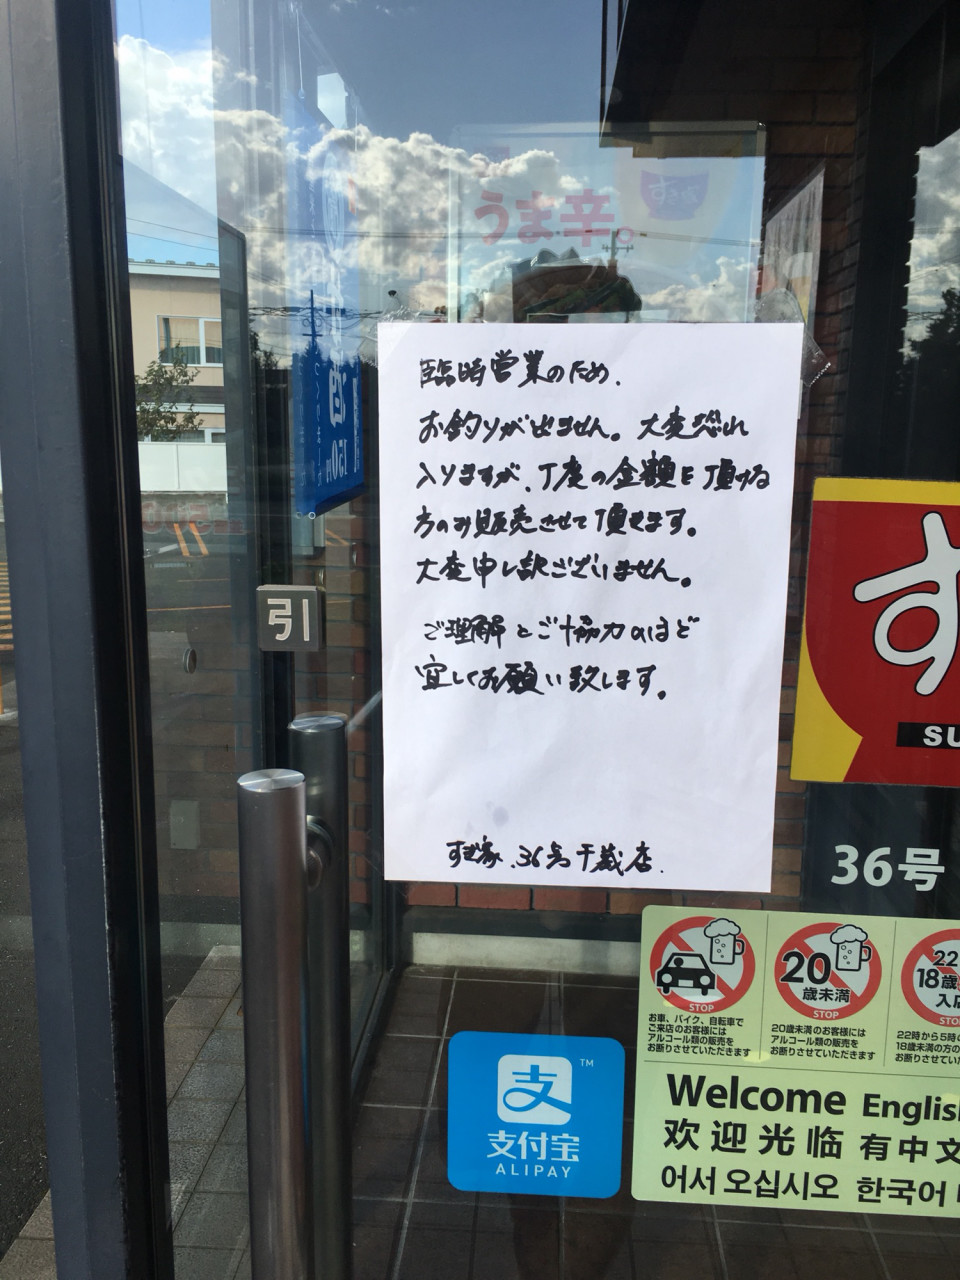 うま辛。
すき家
臨時営業のため.
お釣りが出ません。大変恐れ
入りますが、丁度の金額を頂ける
方のみ販売させて頂きます。
大変申し訳ございません。
ご理解とご協力のほど
宜しくお願い致します。
すき家.36号千歳店.
150円
引
す
SU
36号
STOP
お車、バイク、自転車で
ご来店のお客様には
アルコール類の販売を
お断りさせていただきます
20
歳未満
STOP
20歳未満のお客様には
アルコール類の販売を
お断りさせていただきます
22
18歳
入店
STO
22時から5時の
18歳未満の方の
お断りさせてい
支
TM
支付宝
ALIPAY
Welcome English
欢迎光临 有中文
어서 오십시오 한국어